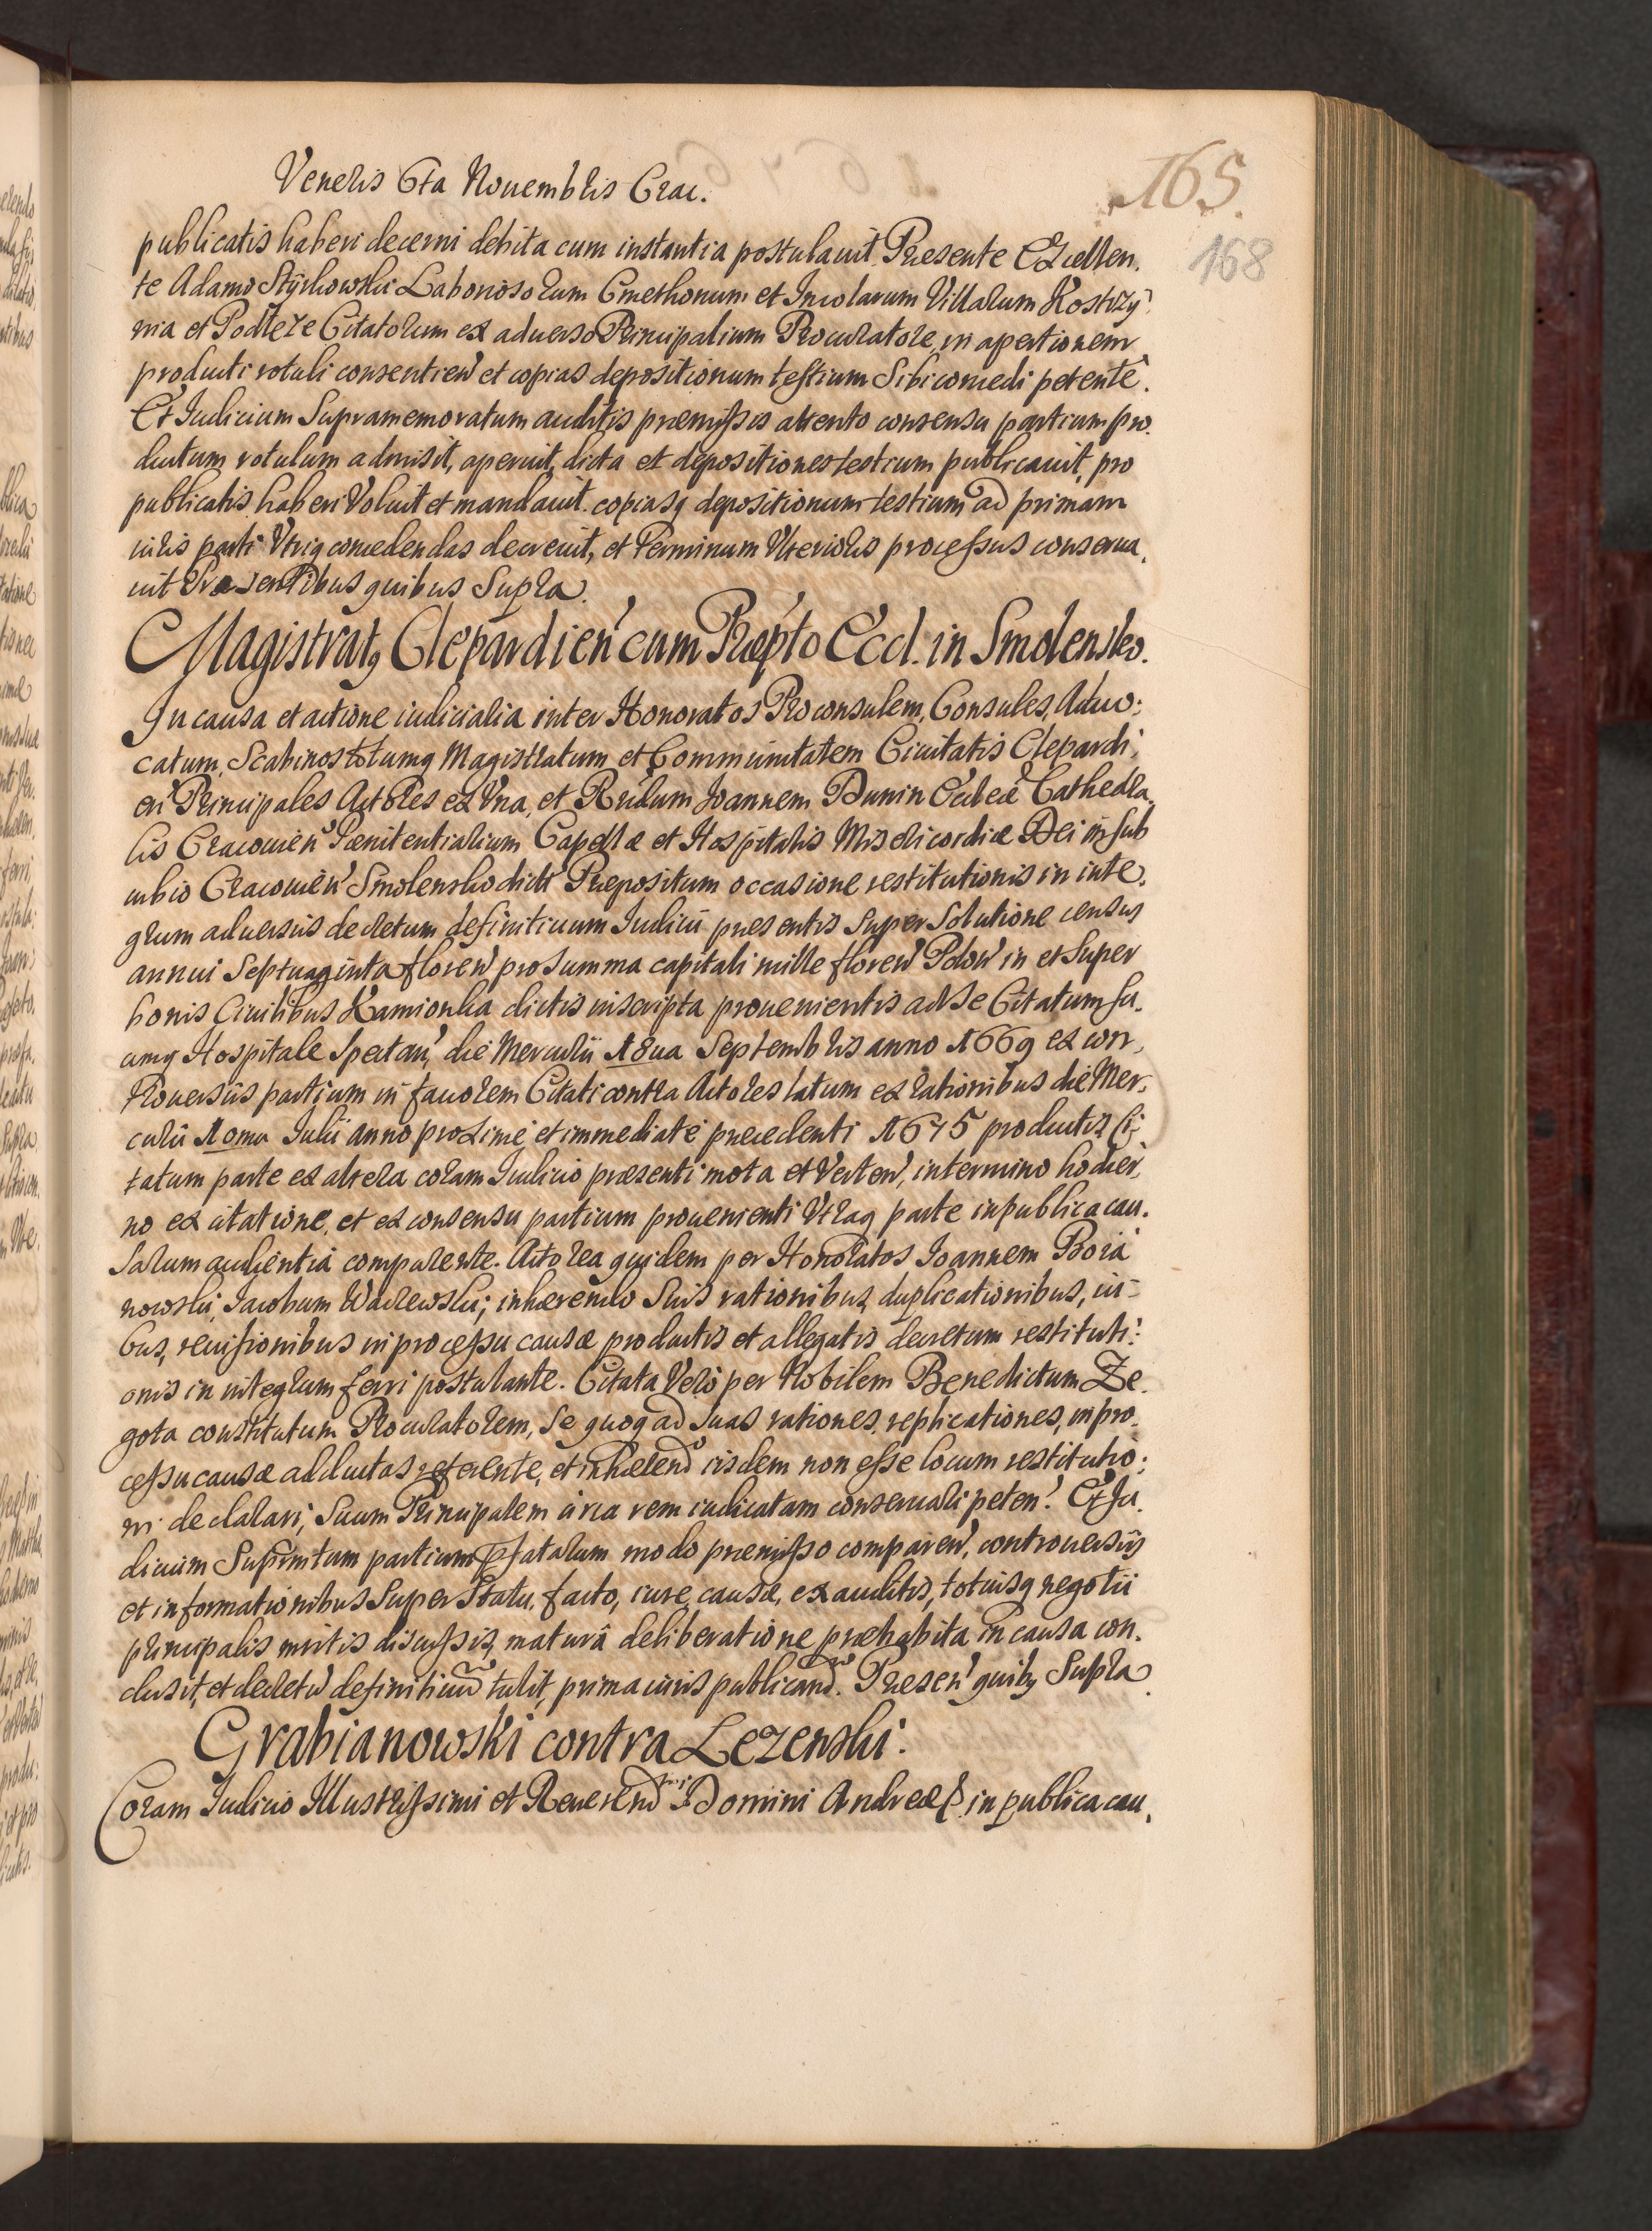 Veneris 6ta Nouembris Crac.
165.
168
publicatis haberi decerni debita cum instantia postulauit. Presente Excellen.
te Adamo Stÿrkowski Laboriosorum Cmethonum et Incolarum Villarum Kostrzÿ.
nia et Podłęże Citatorum ex aduerso Principalium Procuratore, in apertionem
producti rotuli consentien̄ et copias depositionum testium Sibi concedi petente.
Et Iudicium Supramemoratum auditis præmissis attento consensu partium pro.
ductum rotulum admisit, aperuit, dicta et depositiones testium publicauit, pro
publicatis haberi Voluit et mandauit. copiasq depositionum testium ad primam
iuris parti Vtriq concedendas decreuit, et Terminum Vlterioris processus conserua.
uit Præsentibus quibus Supra.
Magistratq Clepardien̄ cum Præpto Eccl. in Smolensko.
In causa et actione iudicialia inter Honoratos Proconsulem, Consules, Aduo:
catum, Scabinos totumq Magistratum et Communitatem Ciuitatis Clepardi:
en̄ Principales Actores ex Vna, et Rndum Joannem Dunin Eccleæ Cathedra.
lis Cracouien̄ Pænitentiarium Capellæ et Hospitalis Misericordiæ Dei in sub
urbio Cracouien̄ Smolensko dicti Præpositum occasione restitutionis in inte.
grum aduersus decretum definitiuum Iudicii presentis super Solutione census
annui Septuaginta floren̄ pro summa capitali mille floren̄ Polon̄ in et super
bonis Ciuilibus Kamionka dictis inscripta prouenientis ad se Citatum su.
umq Hospitale spectan̄, die Mercurii 18ua Septembris anno 1669 ex con,
trouersiis partium in fauorem Citati contra Actores latum ex rationibus die Mer.
curii 10ma Iulii anno proxime et immediate precedenti 1675 productis Ci
tatum parte ex altera coram Iudicio præsenti mota et Verten̄, in termino hodier.
no ex citatione, et ex consensu partium prouenienti Vtraq parte in publica cau.
sarum audientia comparente. Actorea quidem per Honoratos Joannem Boia
nowski, Jacobum Waclewski; inhærendo Suis rationibus, duplicationibus, iu=
bus, reuisionibus in processu causæ productis et allegatis decretum restituti:
onis in integrum ferri postulante. Citata Vero per Nobilem Benedictum Ze.
gota constitutum Procuratorem, se quoq ad suas rationes, replicationes, in pro.
cessu causæ adductas referente, et inhæren̄do iisdem non esse locum restitutio:
ni declarari, Suum Principalem circa rem iudicatam conseruari peten̄. Et Iu.
dicium Suprmtum partium pfatarum modo præmisso comparen̄, controuersiis
et informationibus Super Statu, facto, iure, causæ, exauditis, totiusq negotii
principalis meritis discussis, matura deliberatione præhabita in causa con.
clusit, et decretū definitiuū tulit, prima iuris publicand̄o. Presen̄ quibq Supra.
Grabianowski contra Lezenski.
Coram Iudicio Illustrissimi et Reuerendmi Domini Andreæ in publica cau.